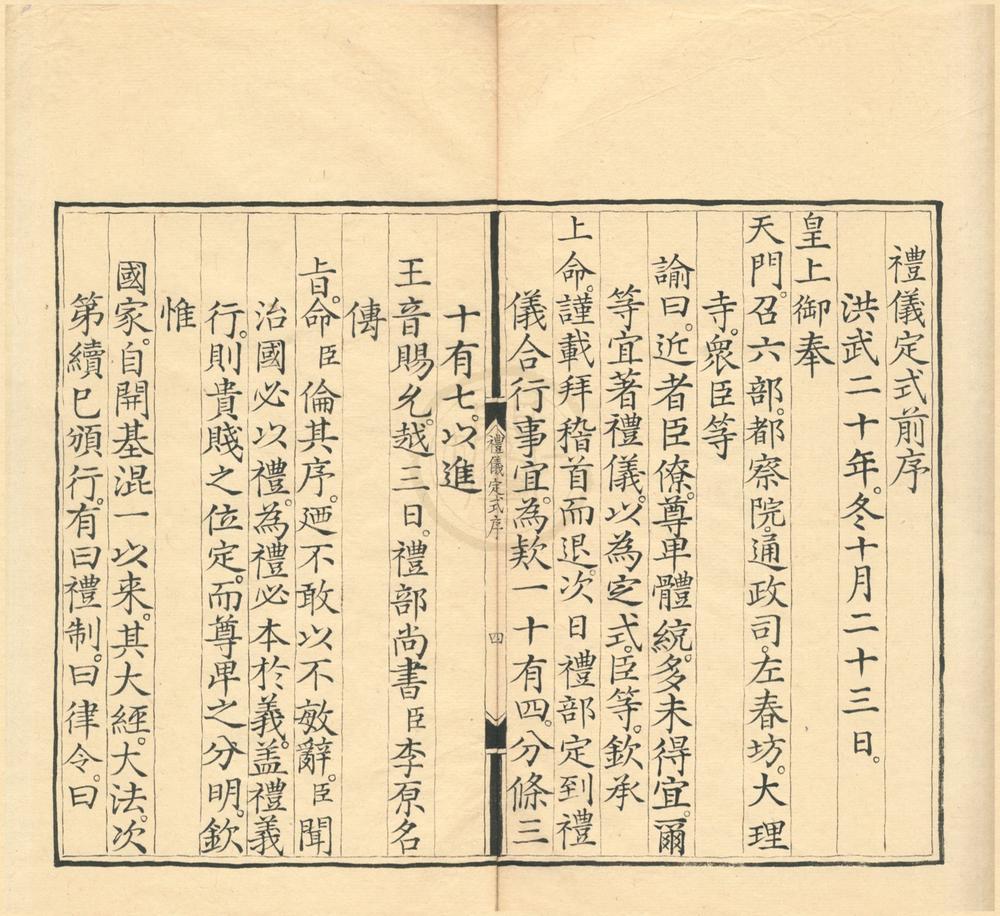 禮儀定式前序
洪武二十年。冬十月二十三日。
皇上御奉
天門。召六部。都察院。通政司。左春坊。大理
寺。衆臣等
諭曰。近者臣僚。尊卑體統。多未得宜。爾
等宜著禮儀。以為定式。臣等。欽承
上命。謹載拜稽首而退。次日禮部定到禮
儀合行事宜。為欵一十有四。分條三
禮儀定式序
四
十有七。以進
王音賜允。越三日。禮部尚書臣李原名
傳
旨。命臣倫其序。廼不敢以不敏辭。臣聞
治國必以禮。為禮必本於義。盖禮義
行。則貴賤之位定。而尊卑之分明。欽
惟
國家。自開基混一以来。其大經。大法。次
第續已頒行。有曰禮制。曰律令。曰